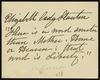 Elizabeth Cady Stanton
"There is a word sweeter
than Mother, Home
or Heaven; that
word is Liberty."